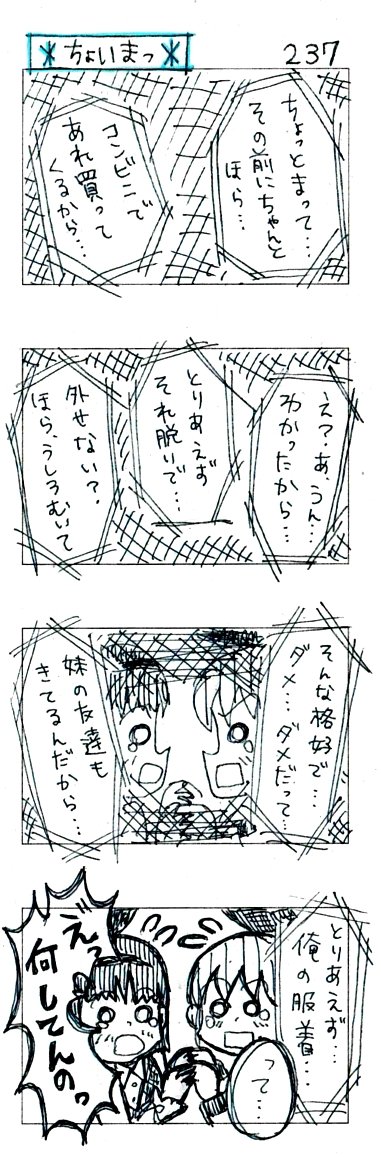 ＊ちょいまっ＊
237
ちょっとまって…
その前にちゃんと
ほら…
コンビニで
あれ買って
くるから…
え？あ、うん…
わかったから…
とりあえず
それ脱いで…
外せない？
ほら、うしろむいて
そんな格好で…
ダメ…ダメだって…
妹の友達も
きてるんだから…
とりあえず…
俺の服着…
って…
えっ
何してんのっ